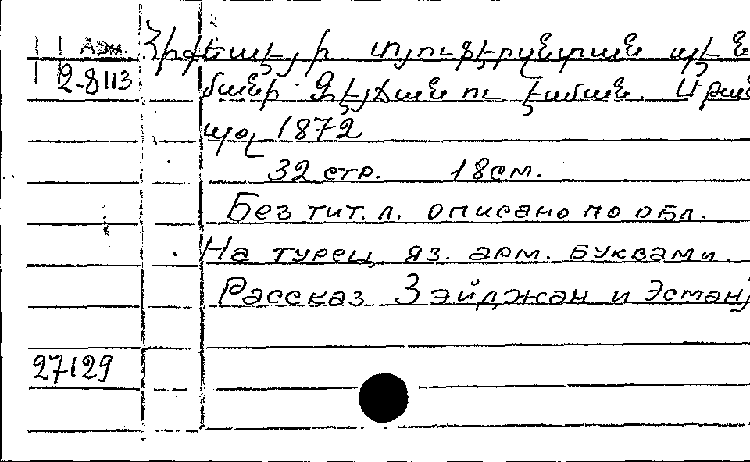 Арм.
2-8113
Հիքեայէ ի
մանի Զէյճան ու Էսման.
պօլ 1872
32 стр. 18 см.
Без тит. л. описано по обл.
На турец. яз. арм. буквами.
Рассказ Зэйджан и Эсман
27129